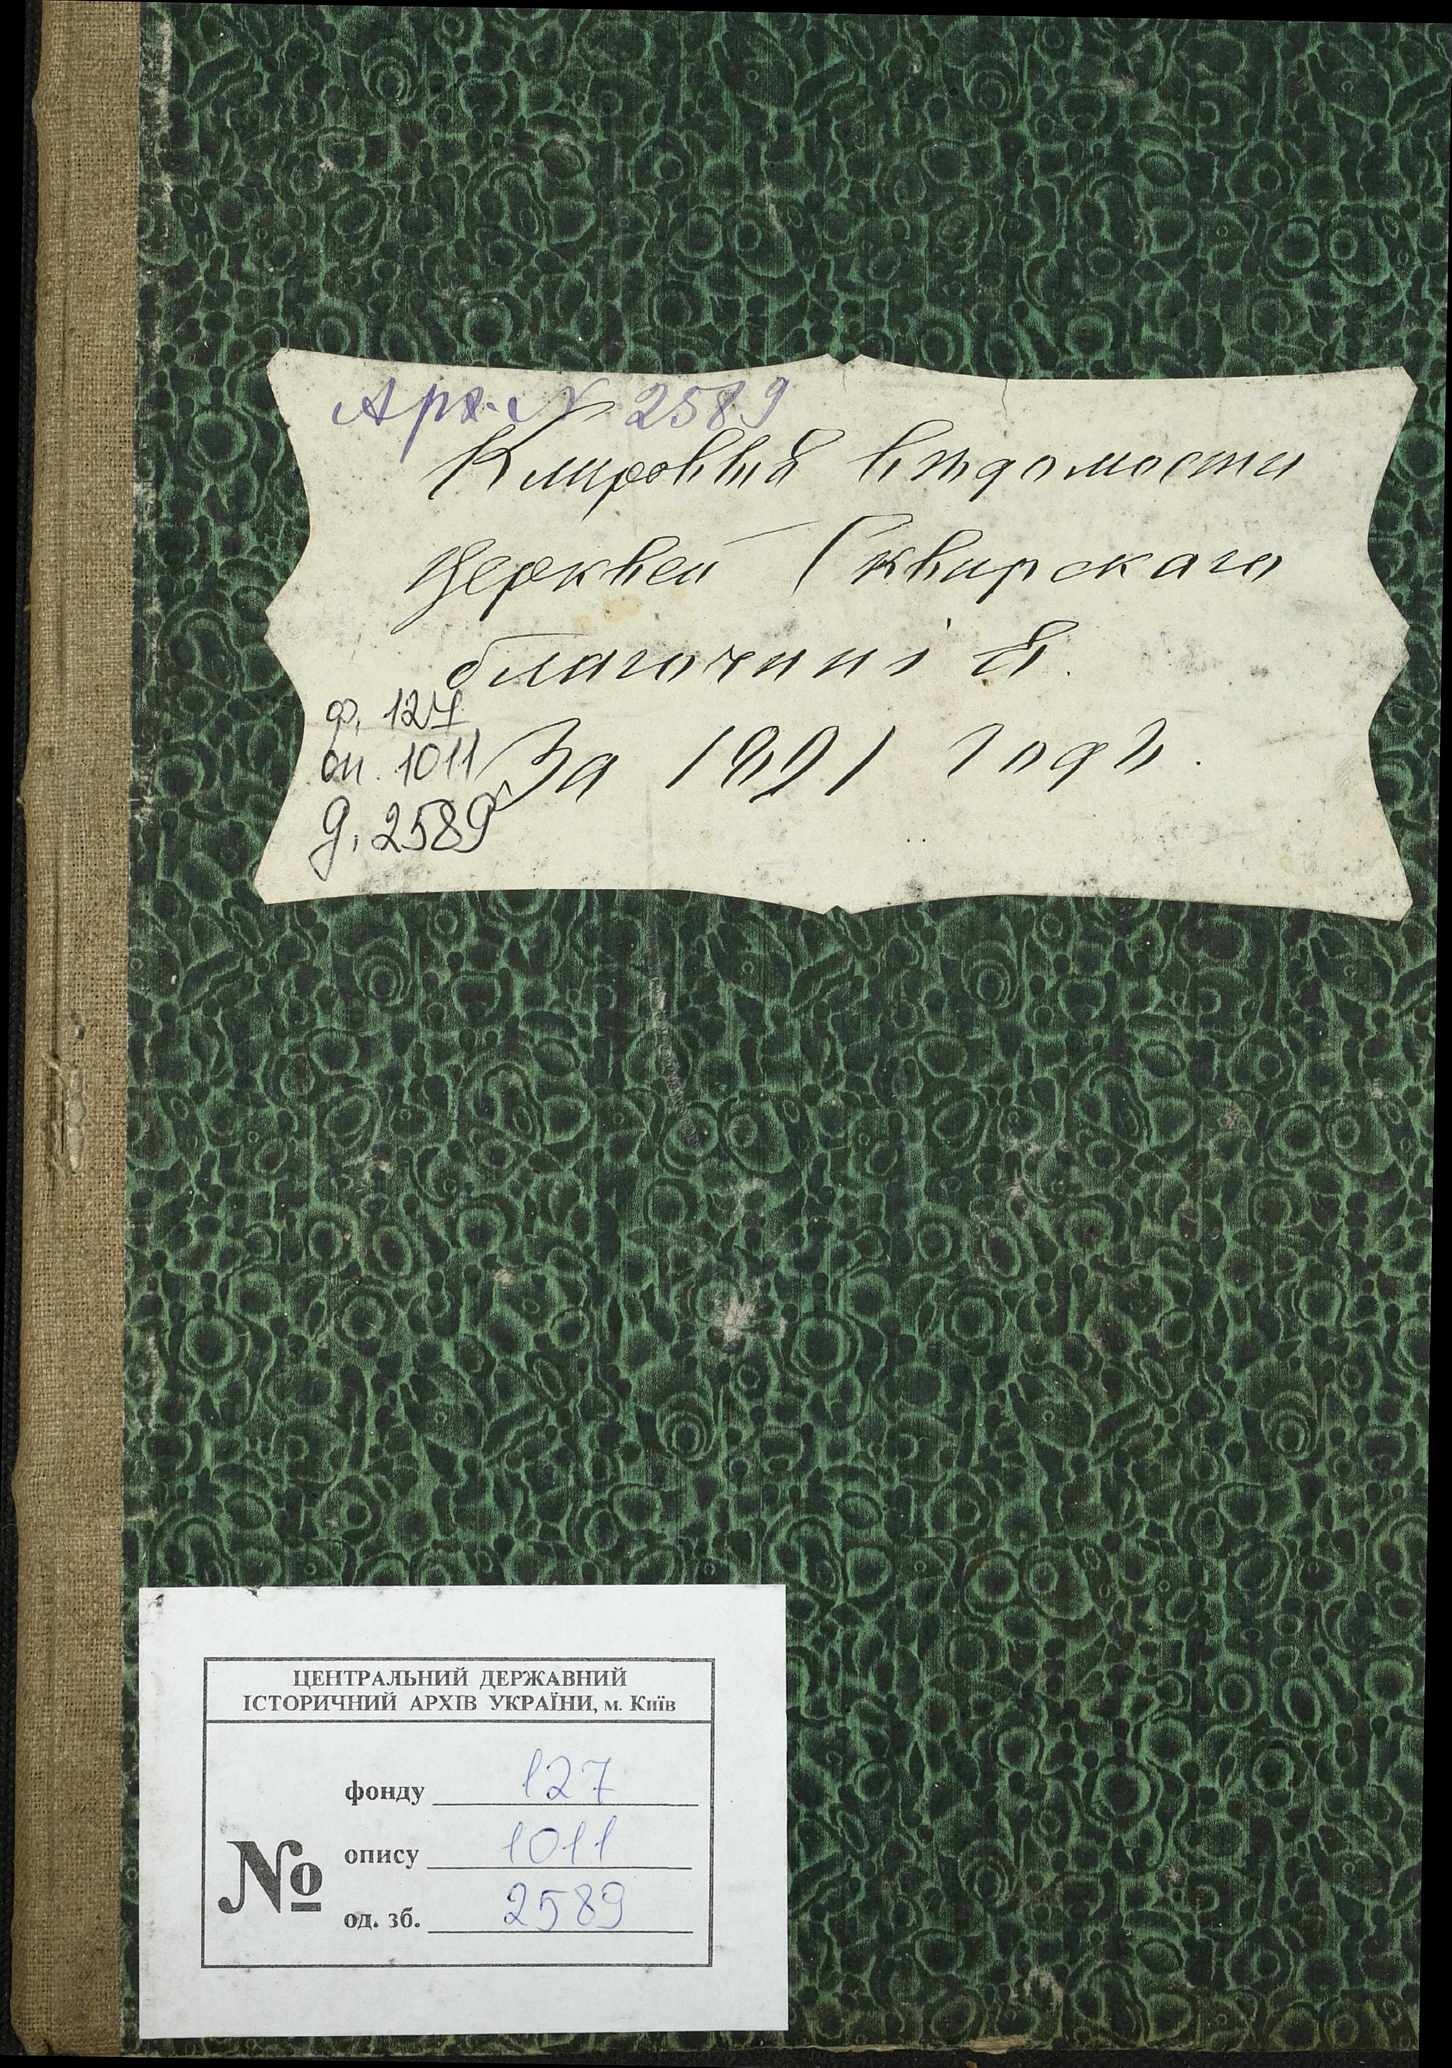 Арх. № 2589
Клировыя вѣдомости
Церквей Сквирскаго
благочинія.
ф. 127
оп. 1011
За 1891 годъ.
д. 2589
ЦЕНТРАЛЬНИЙ ДЕРЖАВНИЙ
ІСТОРИЧНИЙ АРХІВ УКРАЇНИ, м. Київ
фонду 127
№ опису 1011
од. зб. 2589